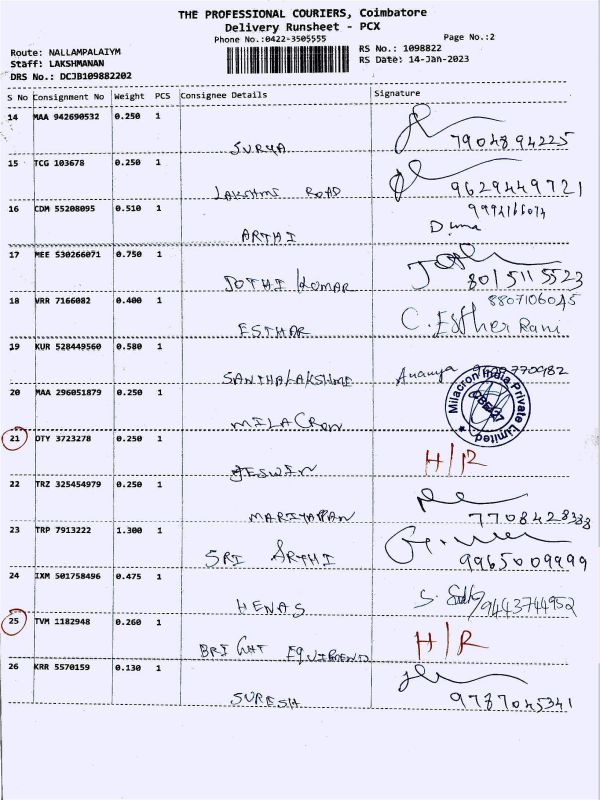 THE PROFESSIONAL COURIERS, Coimbatore
Delivery Runsheet - PCX
Phone No.:0422-3505555
Page No.:2
Route: NALLAMPALAIYM
RS No.: 1098822
Staff: LAKSHMANAN
RS Date: 14-Jan-2023
DRS No.: DCJB109882202
S No Consignment No Weight PCS Consignee Details Signature
14 MAA 942690532 0.250 1
SURYA 7904894225
15 TCG 103678 0.250 1
LAKSHMI ROAD 9629449721
16 CDM 55208095 0.510 1
ARTHI
17 MEE 530266071 0.750 1
JOTHI KUMAR 8015115523
18 VRR 7166082 0.400 1 8807106045
ESTHAR C. Esther Rani
19 KUR 528449560 0.580 1
SANTHALAKSHMI Ananya
20 MAA 296051879 0.250 1
MILACRON
Milacron India Private Limited
21 OTY 3723278 0.250 1 H/R
JESWIN
22 TRZ 325454979 0.250 1
MARIYAPPAN
23 TRP 7913222 1.300 1
SRI ARTHI 9965009999
24 IXM 501758496 0.475 1
HENAS 9443744952
25 TVM 1182948 0.260 1 H/R
BRIGHT EQUIPMEND
26 KRR 5570159 0.130 1
SURESH 9787045341